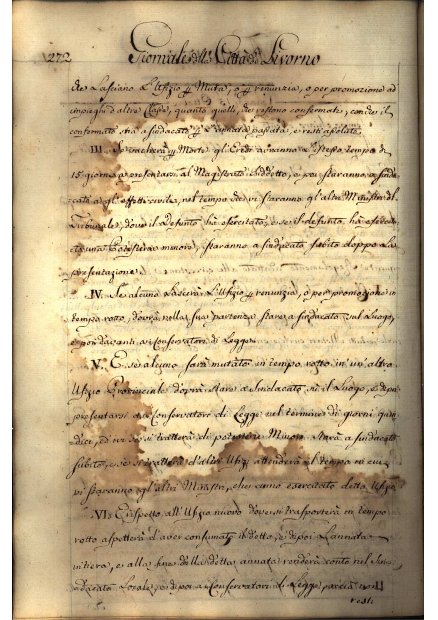 272 Giornale della Città di Livorno
che lasciano l'Ufizio per Muta, o per renunzia, o per promozione ad
impieghi d'altre Classi, quanto quelli, che restono confermati, con che il
confermato stia a sindacato per l'annata passata, e resti assoluto.
III. Se vacherà per Morte gl'Eredi avranno l'istesso tempo di
15 giorni a presentarsi al Magistrato suddetto, e poi staranno a sinda-
cato a gl'effetti civili, nel tempo che vi staranno gl'altri Ministri del
Tribunale, dove il Defunto hà esercitato, e se il defunto hà eserci-
tata una Potesteria minore, staranno a sindacato subito doppo la
presentazione.
IV. Se alcuno lascerà l'Ufizio per renunzia, o per promozione in
tempo rotto, dovrà nella sua partenza stare a sindacato sul Luogo,
e poi davanti a i Conservatori di Legge.
V. E se alcuno sarà mutato in tempo rotto in un'altro
Ufizio Provinciale dovrà stare a Sindacato sù il Luogo, e di poi
presentarsi a i Conservatori di Legge nel termine di giorni quin-
dici, ed ivi se si tratterà di potesterie Minori starà a sindacato
subito, e se si tratterà d'altri Ufizj attenderà il tempo in cui
vi staranno gl'altri Ministri, che hanno esercitato detto Ufizio
VI. E rispetto all'Ufizio nuovo dove si trasporterà in tempo
rotto aspetterà d'aver consumato il detto, e di poi l'annata
intiera, e alla fine della detta annata renderà conto nel Sin-
dacato Locale, e di poi a i Conservatori di Legge, perciò non
resti